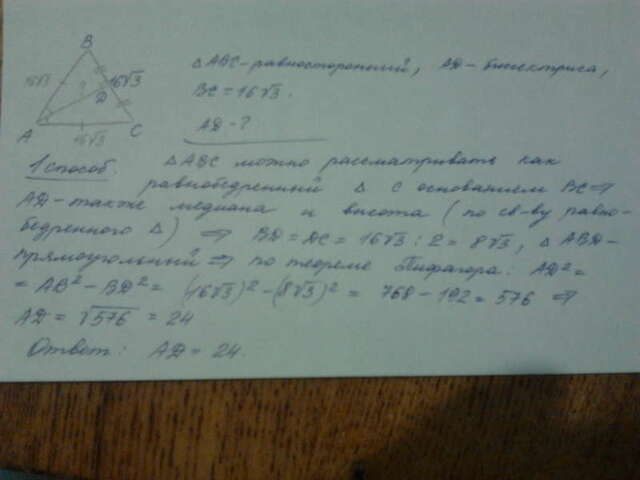 B
16√3
?
16√3
D
A
C
16√3
△ABC - равносторонний, AD - биссектриса,
BC = 16√3.
AD - ?
1 способ. △ABC можно рассматривать как
равнобедренный △ с основанием BC ⇒
AD - также медиана и высота (по св-ву равно-
бедренного △) ⇒ BD = DC = 16√3 : 2 = 8√3, △ABD -
прямоугольный ⇒ по теореме Пифагора: AD² =
= AB² - BD² = (16√3)² - (8√3)² = 768 - 192 = 576 ⇒
AD = √576 = 24
Ответ: AD = 24.